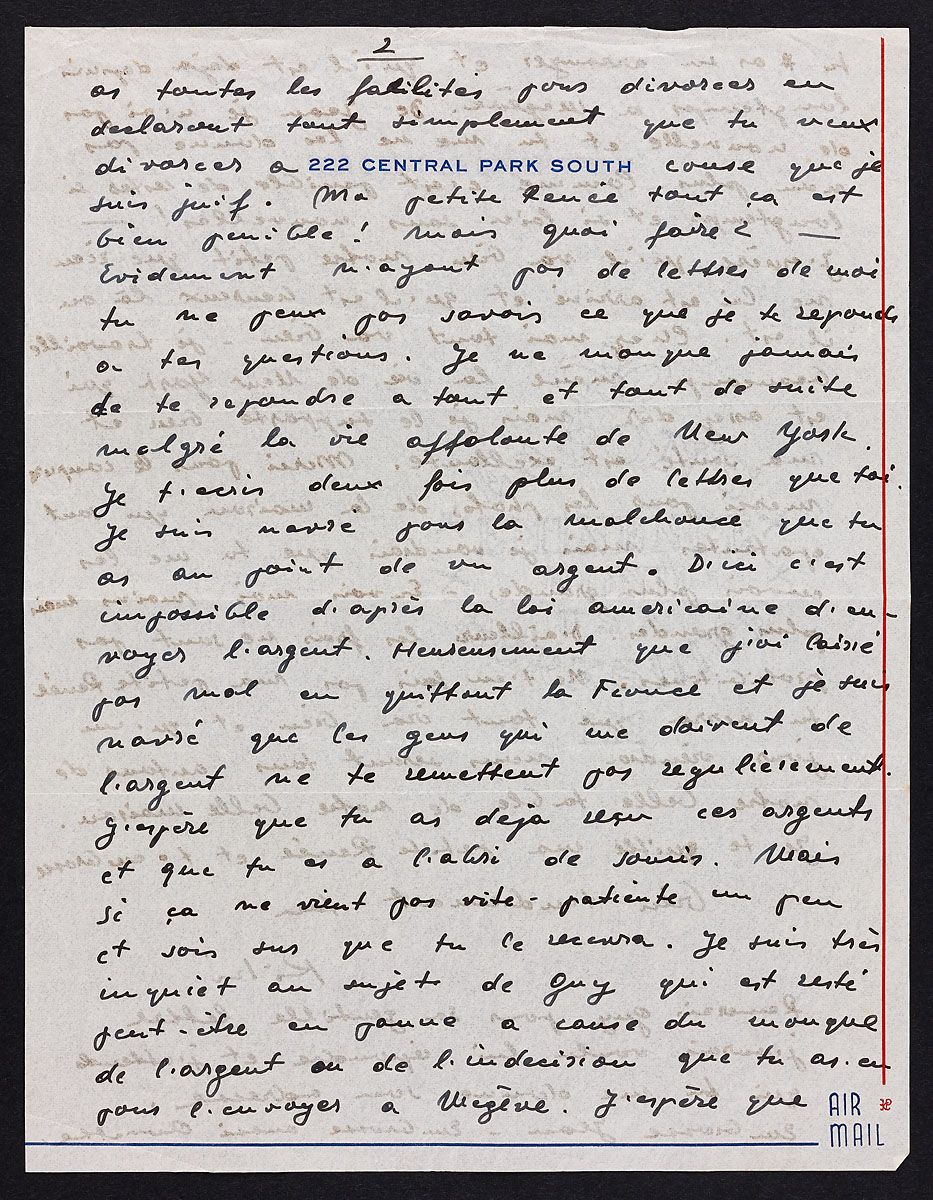 2
as toutes les facilités pour divorcer en
declarant tout simplement que tu veux
divorcer a 222 CENTRAL PARK SOUTH cause que je
suis juif. Ma petite Renée tout ça est
bien penible! Mais quoi faire? —
Evidement n'ayant pas de lettres de moi
tu ne peux pas savoir ce que je te reponds
a tes questions. Je ne manque jamais
de te repondre a tout et tout de suite
malgré la vie affolante de New York.
Je t'ecris deux fois plus de lettres que toi.
Je suis navré pour la malchance que tu
as au point de vu argent. D'ici c'est
impossible d'après la loi americaine d'en-
voyer l'argent. Heureusement que j'ai laissé
pas mal en quittant la France et je suis
navré que les gens qui me doivent de
l'argent ne te remettent pas regulierement.
J'espère que tu as deja reçu ces argents
et que tu es a l'abri de soucis. Mais
si ça ne vient pas vite - patiente un peu
et sois sur que tu le recevra. Je suis très
inquiet au sujet de Guy qui est resté
peut-être en panne a cause du manque
de l'argent ou de l'indecision que tu as en
pour l'envoyer a Megève. J'espère que
AIR
MAIL